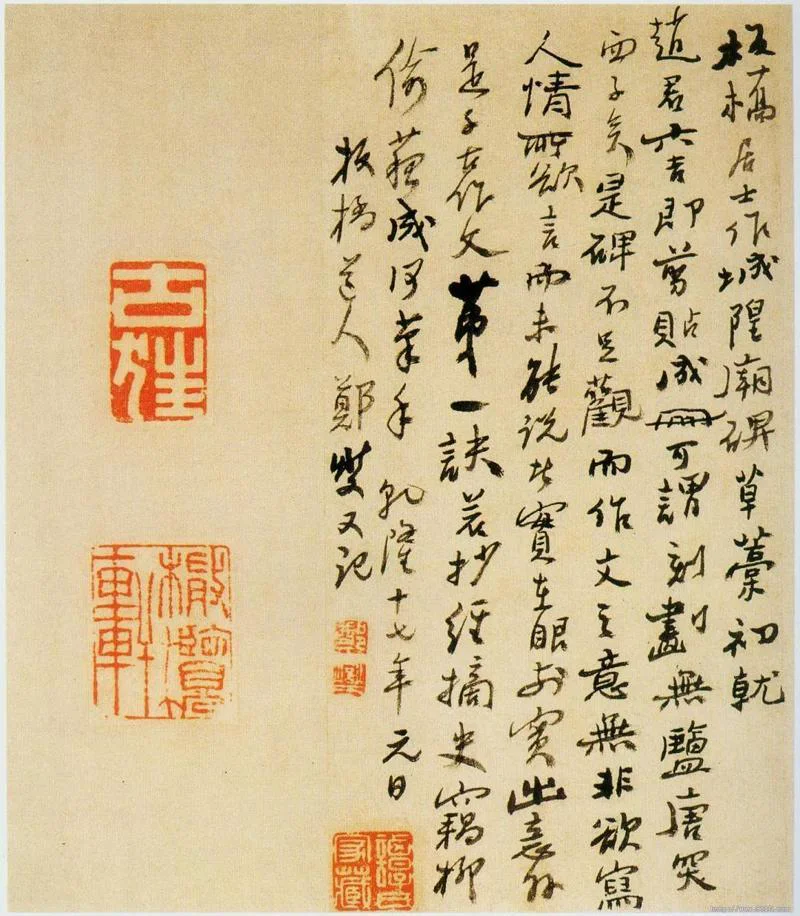 板橋居士作城隍廟碑草藁初就
趙君六吉即剪貼成冊可謂刻畫無鹽唐突
西子矣是碑不足觀而作文之意無非欲寫
人情所欲言而未能說此實在眼前實出意外
是千古作文第一訣若抄經摘史竊柳
偷蘇成何筆手乾隆十七年元日
板橋道人鄭燮又記
鄭燮
橄欖軒
家藏